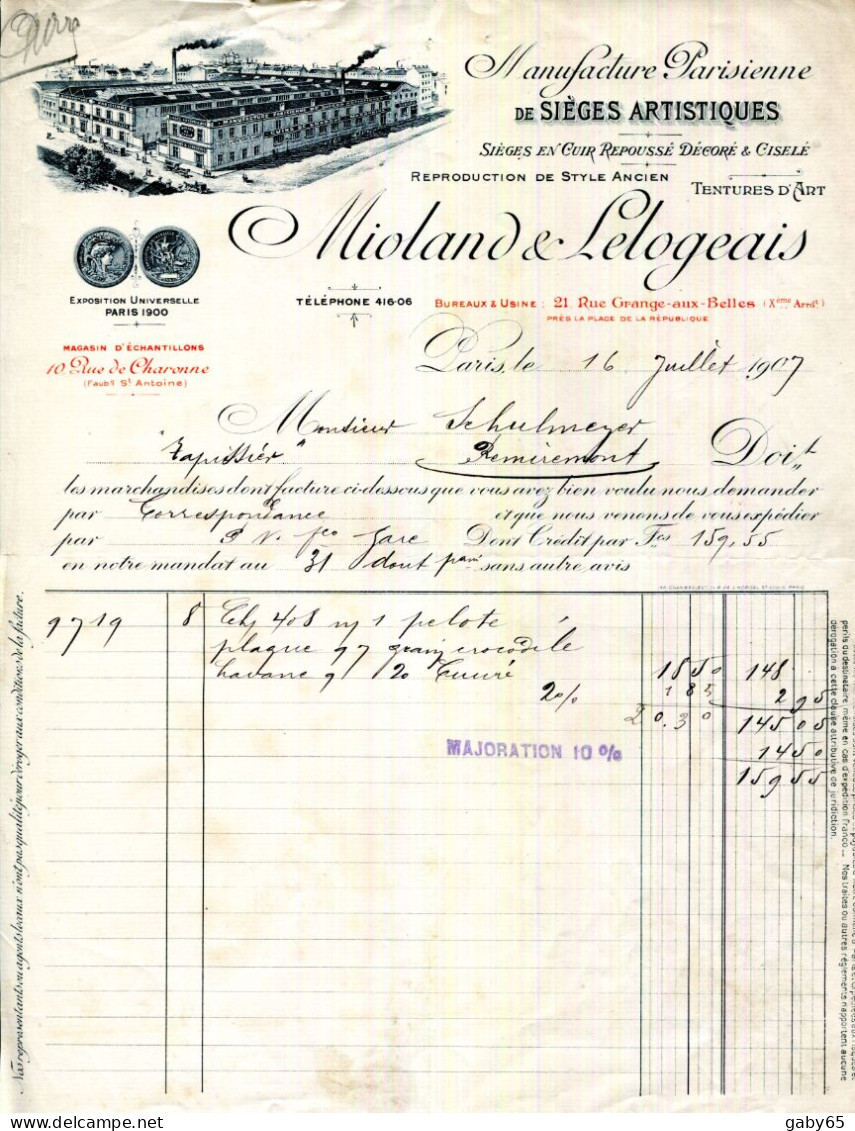 Manufacture Parisienne
DE SIÈGES ARTISTIQUES
SIÈGES EN CUIR REPOUSSÉ DÉCORÉ & CISELÉ
REPRODUCTION DE STYLE ANCIEN
TENTURES D'ART
Mioland & Lelogeais
EXPOSITION UNIVERSELLE
PARIS 1900
TÉLÉPHONE 416-06
BUREAUX & USINE : 21, Rue Grange-aux-Belles (Xème Arrdt)
PRÈS LA PLACE DE LA RÉPUBLIQUE
MAGASIN D'ÉCHANTILLONS
10, Rue de Charonne
(Faubg St Antoine)
Paris, le 16 Juillet 1907
Monsieur Schulmeyer
"Tapissier" Remiremont Doit
les marchandises dont facture ci-dessous que vous avez bien voulu nous demander
par Correspondance et que nous venons de vous expédier
par P. V. fco gare Dont Crédit par Fcs 159,55
en notre mandat au 31 sans autre avis
9719 8 408 1 pelote
plaque 97 grain crocodile
havane 20 1850 148
2 % 185 295
20.30 14505
MAJORATION 10 % 1450
15955
Nos représentants ou agents locaux n'ont pas qualité pour déroger aux conditions de la facture.
périls du destinataire, même en cas d'expédition franco. _ Nos traites ou autres règlements n'apportent aucune
dérogation à cette clause attributive de juridiction.
gaby65